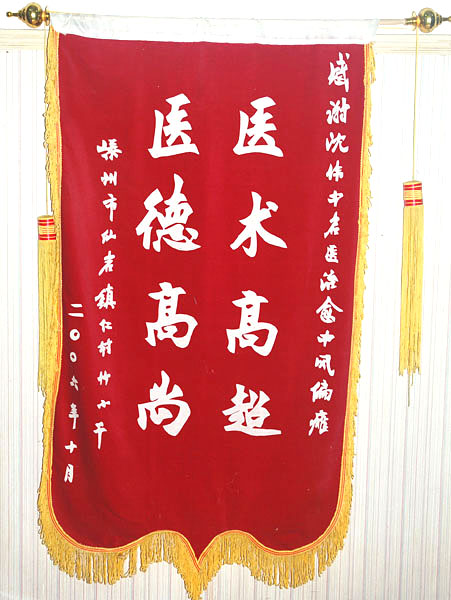 感谢沈伟中名医治愈中风偏瘫
医术高超
医德高尚
嵊州市仙岩镇仁村竹小平
二〇〇六年十月